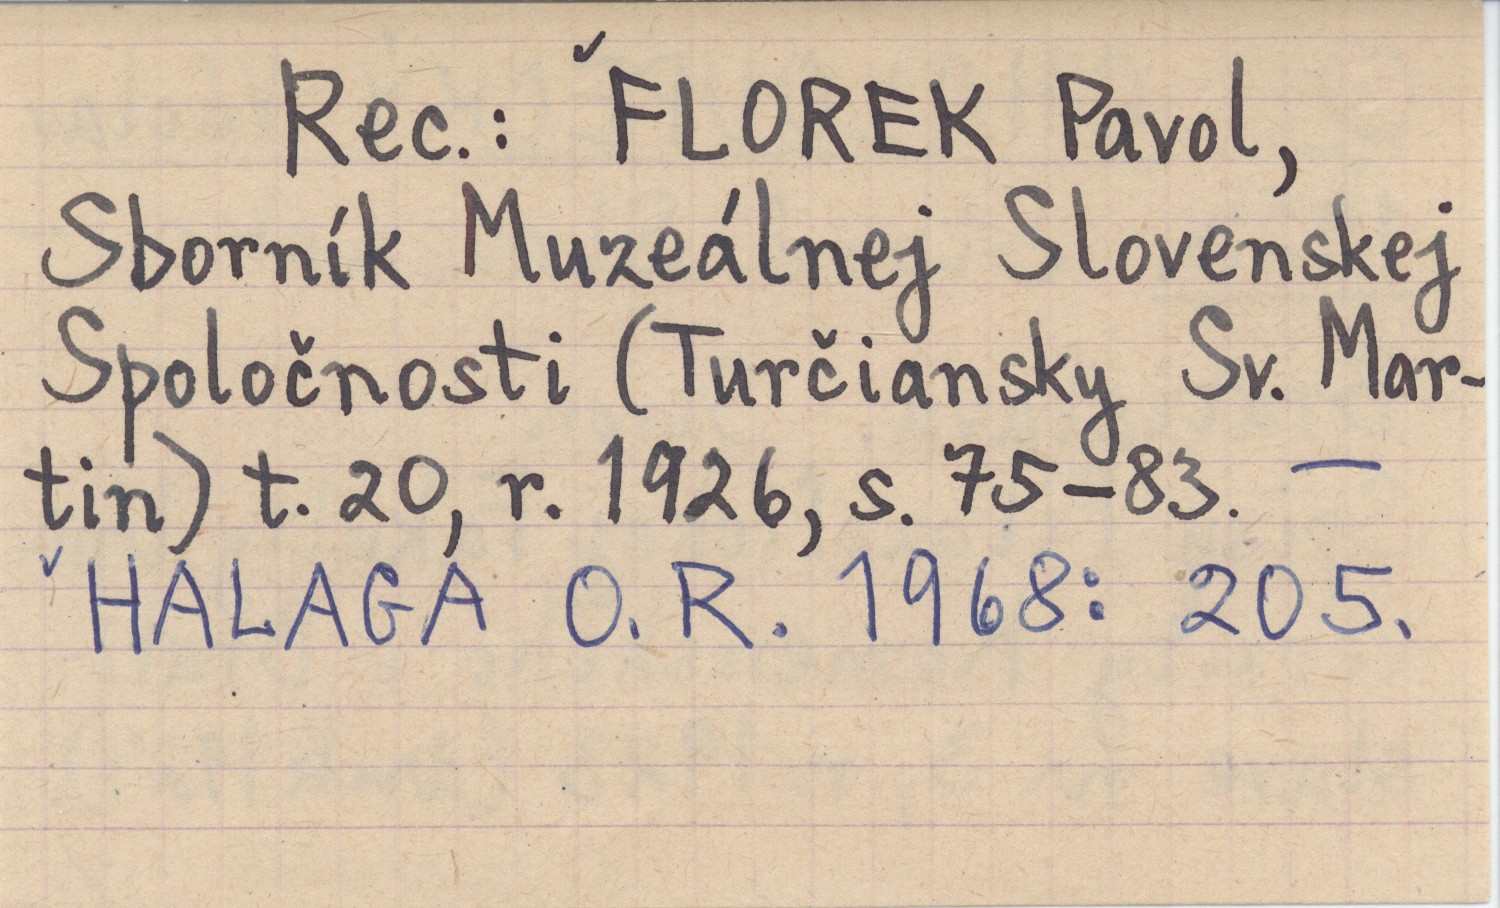 Rec.: ˇFLOREK Pavol,
Sborník Muzeálnej Slovenskej
Spoločnosti (Turčiansky Sv. Mar-
tin) t. 20, r. 1926, s. 75–83. —
ˇHALAGA O. R. 1968: 205.